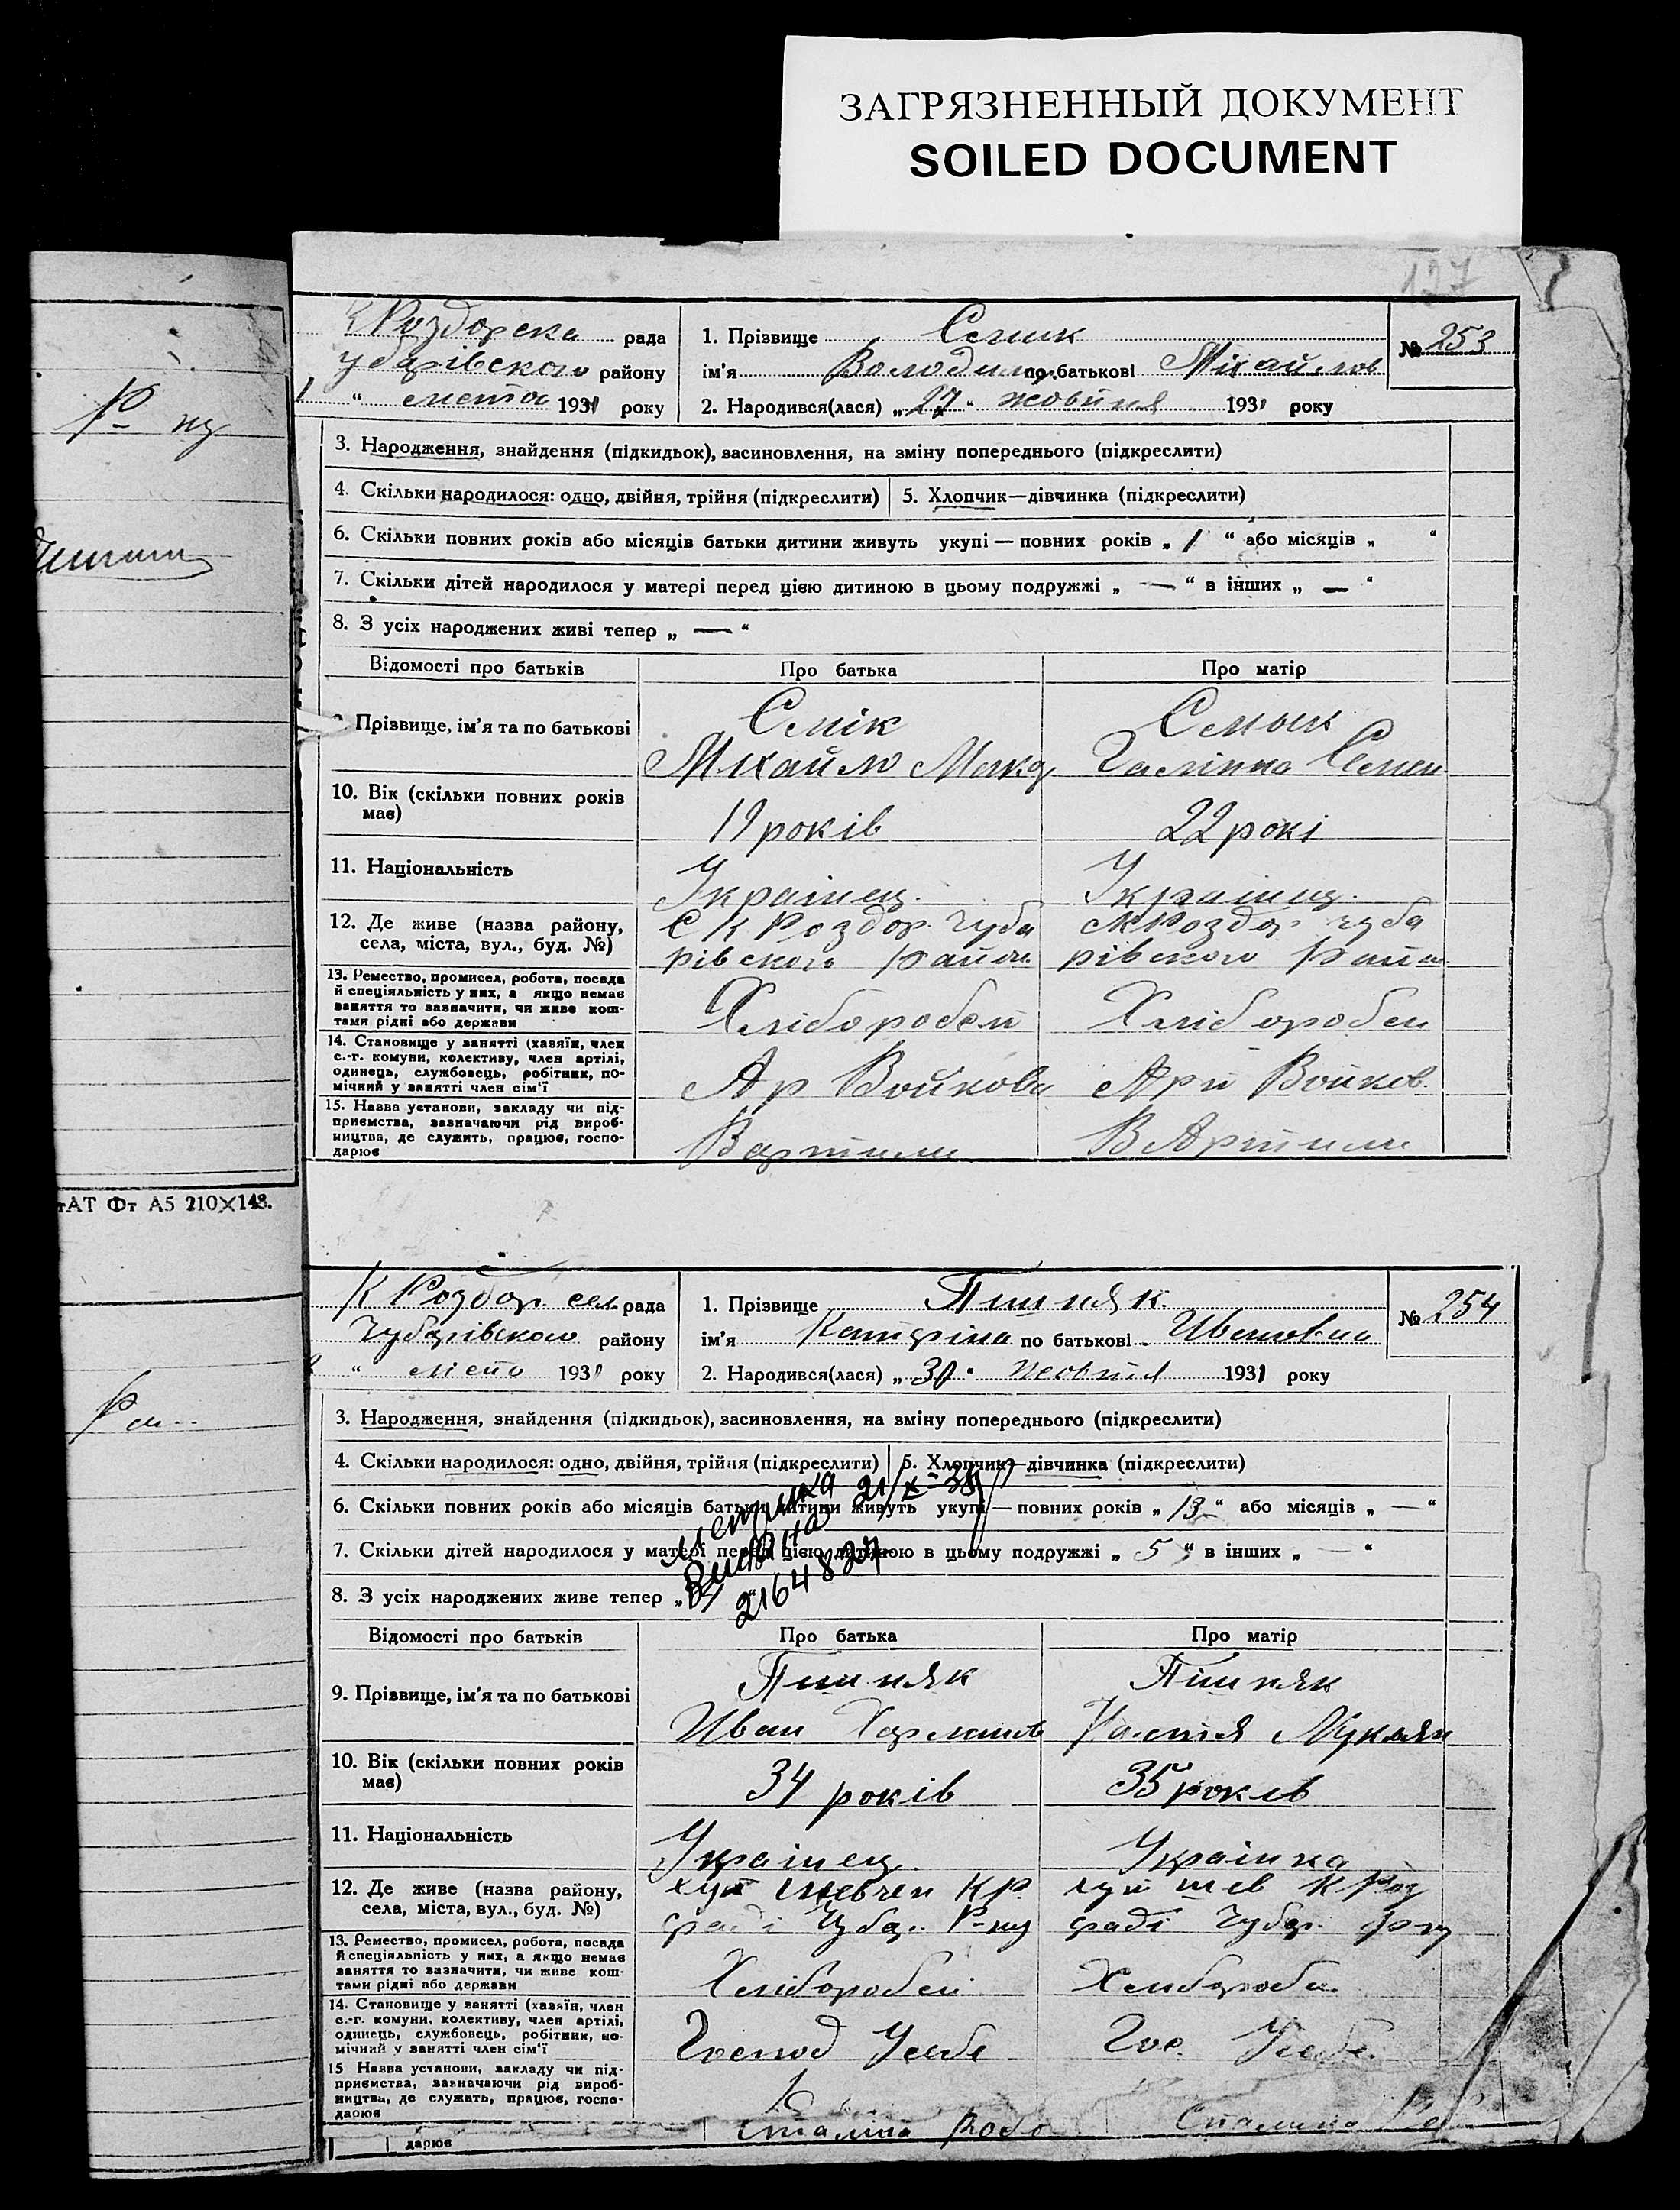 ЗАГРЯЗНЕННЫЙ ДОКУМЕНТ
SOILED DOCUMENT
127
К Роздорска рада
убарівского району
" листо 1931 року
1. Прізвище Семик
ім'я Володимир по батькові Міхайлов
2. Народився(лася) „27" жовтня 1931 року
№ 253
3. Народження, знайдення (підкидьок), засиновлення, на зміну попереднього (підкреслити)
4. Скільки народилося: одно, двійня, трійня (підкреслити) 5. Хлопчик—дівчинка (підкреслити)
6. Скільки повних років або місяців батьки дитини живуть укупі — повних років „ 1 " або місяців „ "
7. Скільки дітей народилося у матері перед цією дитиною в цьому подружжі „ — " в інших „ — "
8. З усіх народжених живі тепер „ — "
Відомості про батьків Про батька Про матір
Прізвище, ім'я та по батькові
Михайло
10. Вік (скільки повних років має) 19 років 22 рокі
11. Національність Українец. Українец.
12. Де живе (назва району, села, міста, вул., буд. №)
С К Роздор. Чуба рівского Район
с К Роздор Чуба рівского Район
13. Ремество, промисел, робота, посада й спеціяльність у них, а якщо немає заняття то зазначити, чи живе коштами рідні або держави
Хлібороб Хлібороб
14. Становище у занятті (хазяїн, член с.-г. комуни, колективу, член артілі, одинець, службовець, робітник, помічний у занятті член сім'ї
Ар Войкова Арті Войков.
15. Назва установи, закладу чи підприємства, зазначаючи рід виробництва, де служить, працює, господарює
В артили В Артили
тАТ Фт А5 210×148.
К Роздор. сел. рада
Чубарівского району
" листо 1931 року
1. Прізвище Пишняк.
ім'я Катеріна по батькові Ивановна
2. Народився(лася) „30" жовтня 1931 року
№ 254
3. Народження, знайдення (підкидьок), засиновлення, на зміну попереднього (підкреслити)
4. Скільки народилося: одно, двійня, трійня (підкреслити) 5. Хлопчик—дівчинка (підкреслити)
6. Скільки повних років або місяців батьки дитини живуть укупі — повних років „ 13 " або місяців „ — "
7. Скільки дітей народилося у матері перед цією дитиною в цьому подружжі „ 5 " в інших „ — "
8. З усіх народжених живе тепер „
метрика 21/X-38
видана
Відомості про батьків Про батька Про матір
9. Прізвище, ім'я та по батькові
Пишняк Пишняк
Иван Настя
10. Вік (скільки повних років має) 34 років 35 років
11. Національність Українец. Українка
12. Де живе (назва району, села, міста, вул., буд. №)
хут Шевчен К Р. раді Чубар. Р-ну
хут шев К Роз раді Чубар. р ну
13. Ремество, промисел, робота, посада й спеціяльність у них, а якщо немає заняття то зазначити, чи живе коштами рідні або держави
Хлібороб Хлібороб
14. Становище у занятті (хазяїн, член с.-г. комуни, колективу, член артілі, одинець, службовець, робітник, помічний у занятті член сім'ї
Господ У себе Гос. У себе.
15 Назва установи, закладу чи підприємства, зазначаючи рід виробництва, де служить, працює, господарює
дарює